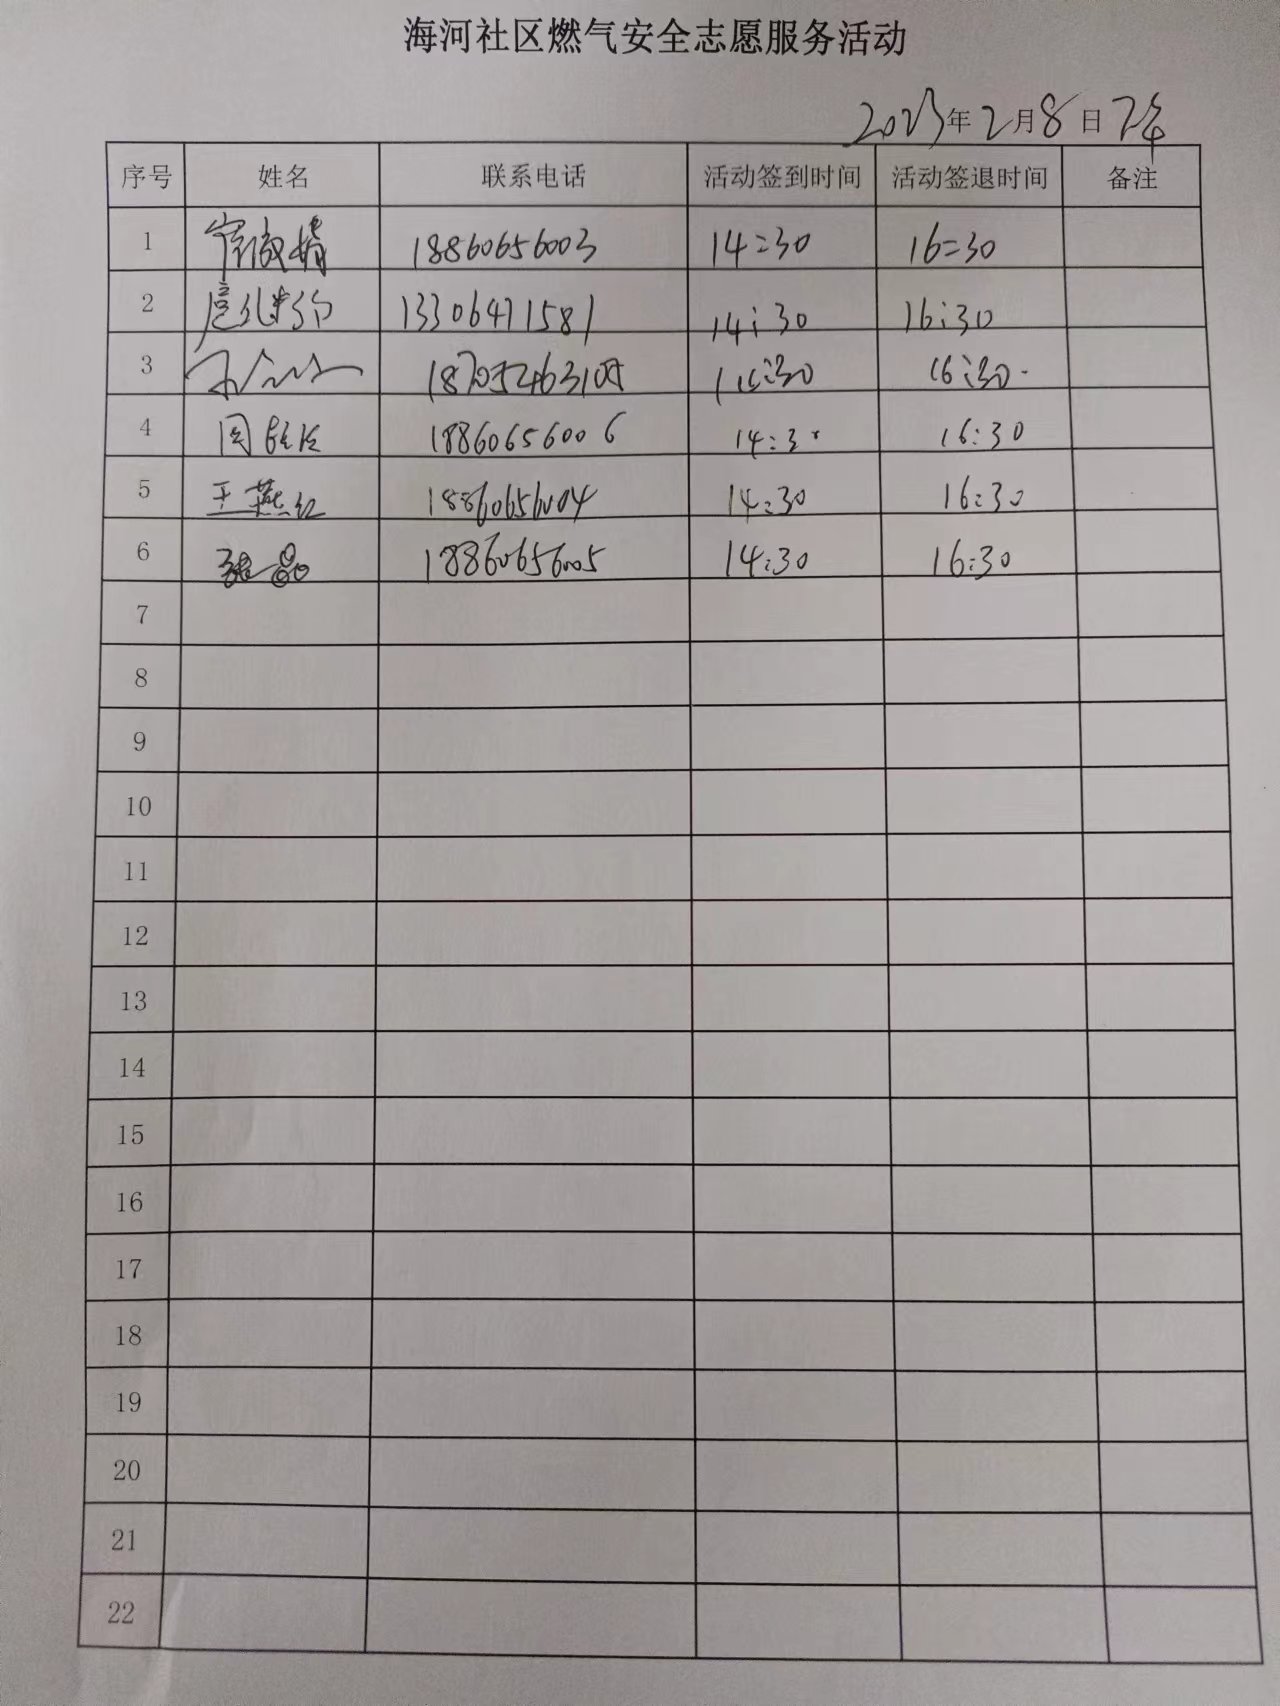 海河社区燃气安全志愿服务活动
2023年2月8日 下午
序号 姓名 联系电话 活动签到时间 活动签退时间 备注
1 18860656003 14:30 16:30
2 13306471581 14:30 16:30
3 16:30
4 18860656006 14:30 16:30
5 王燕红 18860656004 14:30 16:30
6 张晶 18860656005 14:30 16:30
7
8
9
10
11
12
13
14
15
16
17
18
19
20
21
22